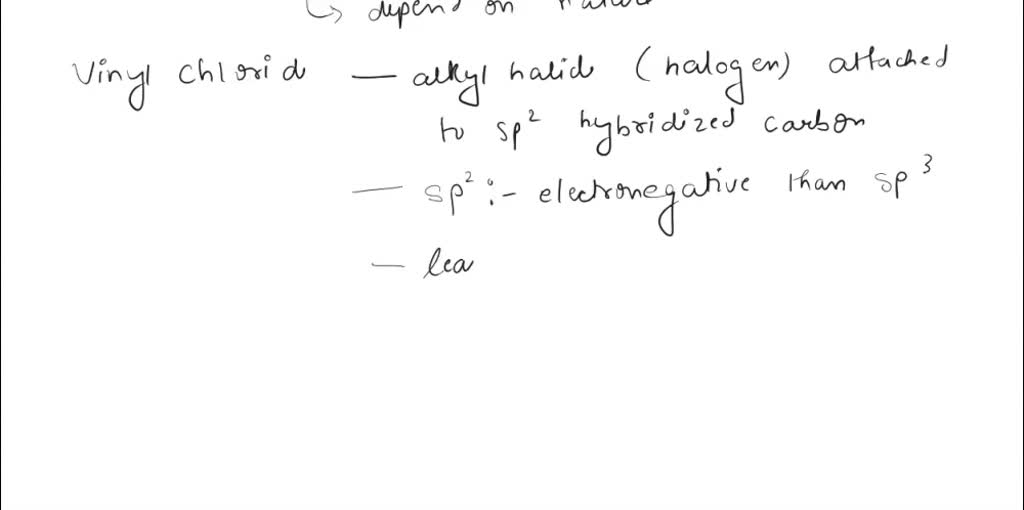 ↳ depend on
Vinyl chlorid — alkyl halid (halogen) attached
to sp² hybridized carbon
— sp² :- electronegative than sp³
— lea